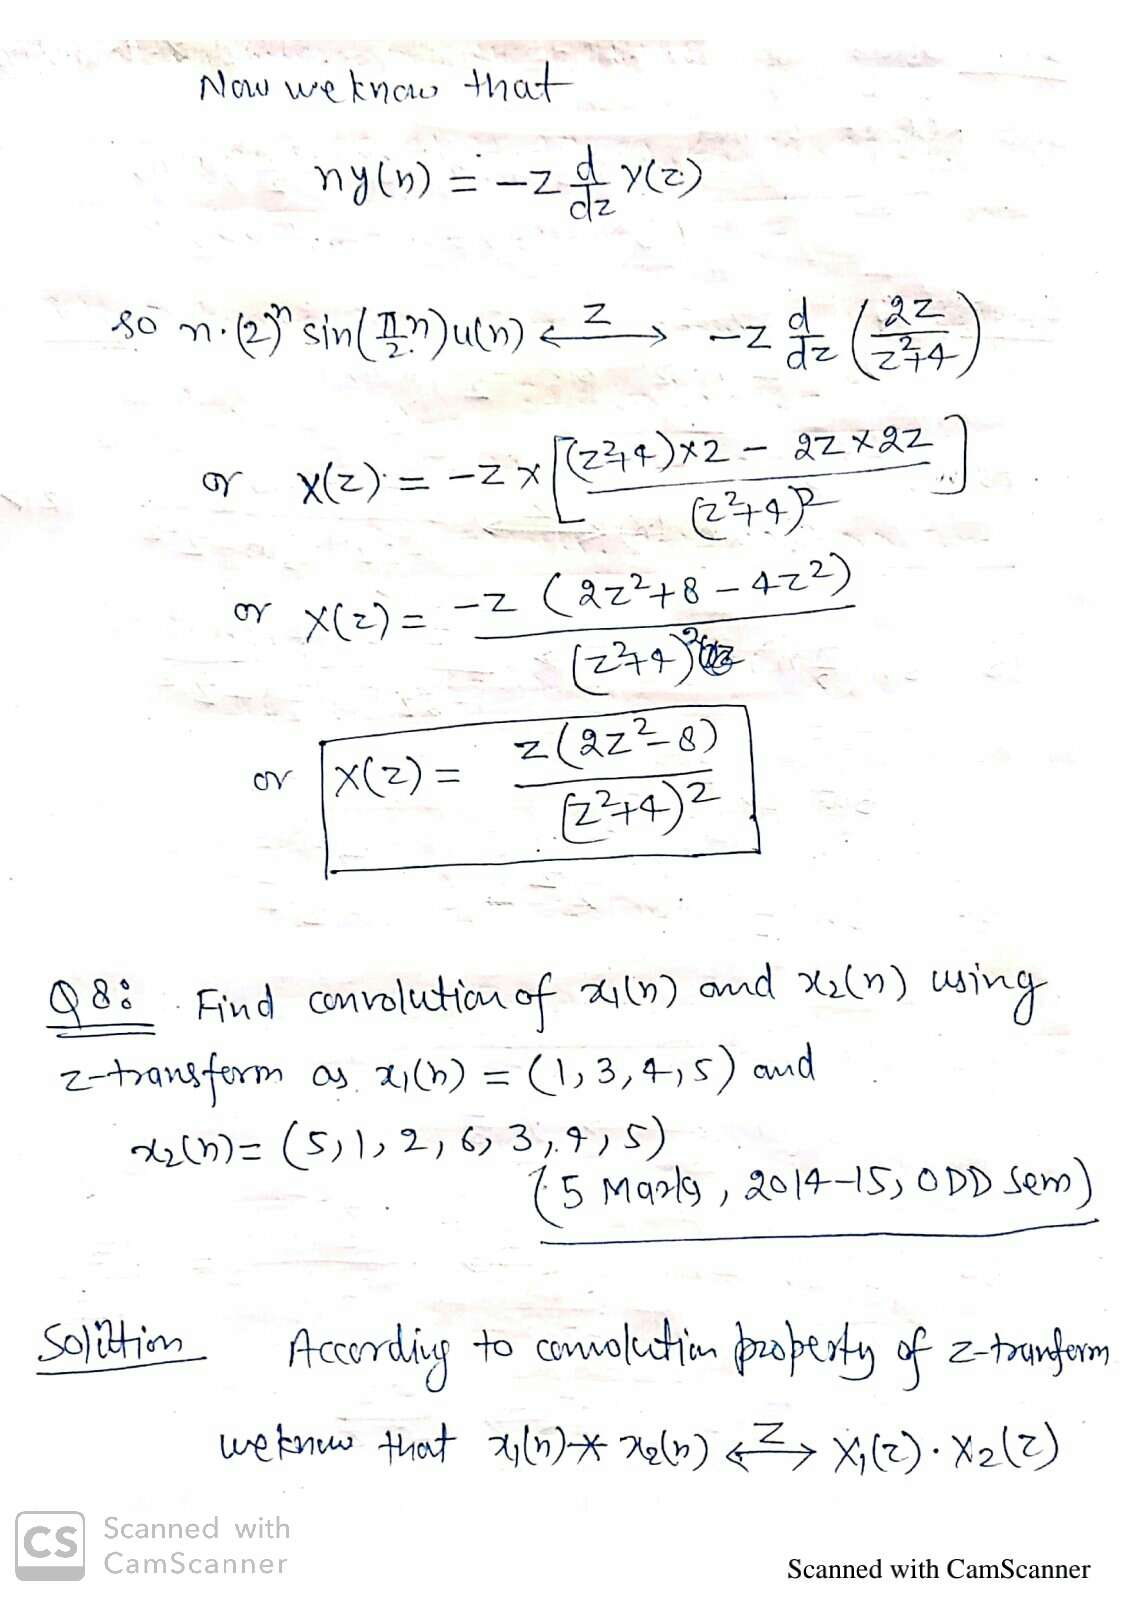 Now we know that
ny(n) = -z d/dz Y(z)
so n·(2)ⁿ sin(π/2 n)u(n) ←Z→ -z d/dz (2z / z²+4)
or X(z) = -z × [(z²+4)×2 - 2z×2z / (z²+4)²]
or X(z) = -z (2z²+8-4z²) / (z²+4)²
or X(z) = z(2z²-8) / (z²+4)²
Q8: Find convolution of x₁(n) and x₂(n) using
z-transform as x₁(n) = (1,3,4,5) and
x₂(n) = (5,1,2,6,3,4,5)
(5 Marks, 2014-15, ODD Sem)
Solution According to convolution property of z-tranform
we know that x₁(n) * x₂(n) ←Z→ X₁(z)·X₂(z)
CS Scanned with
CamScanner
Scanned with CamScanner